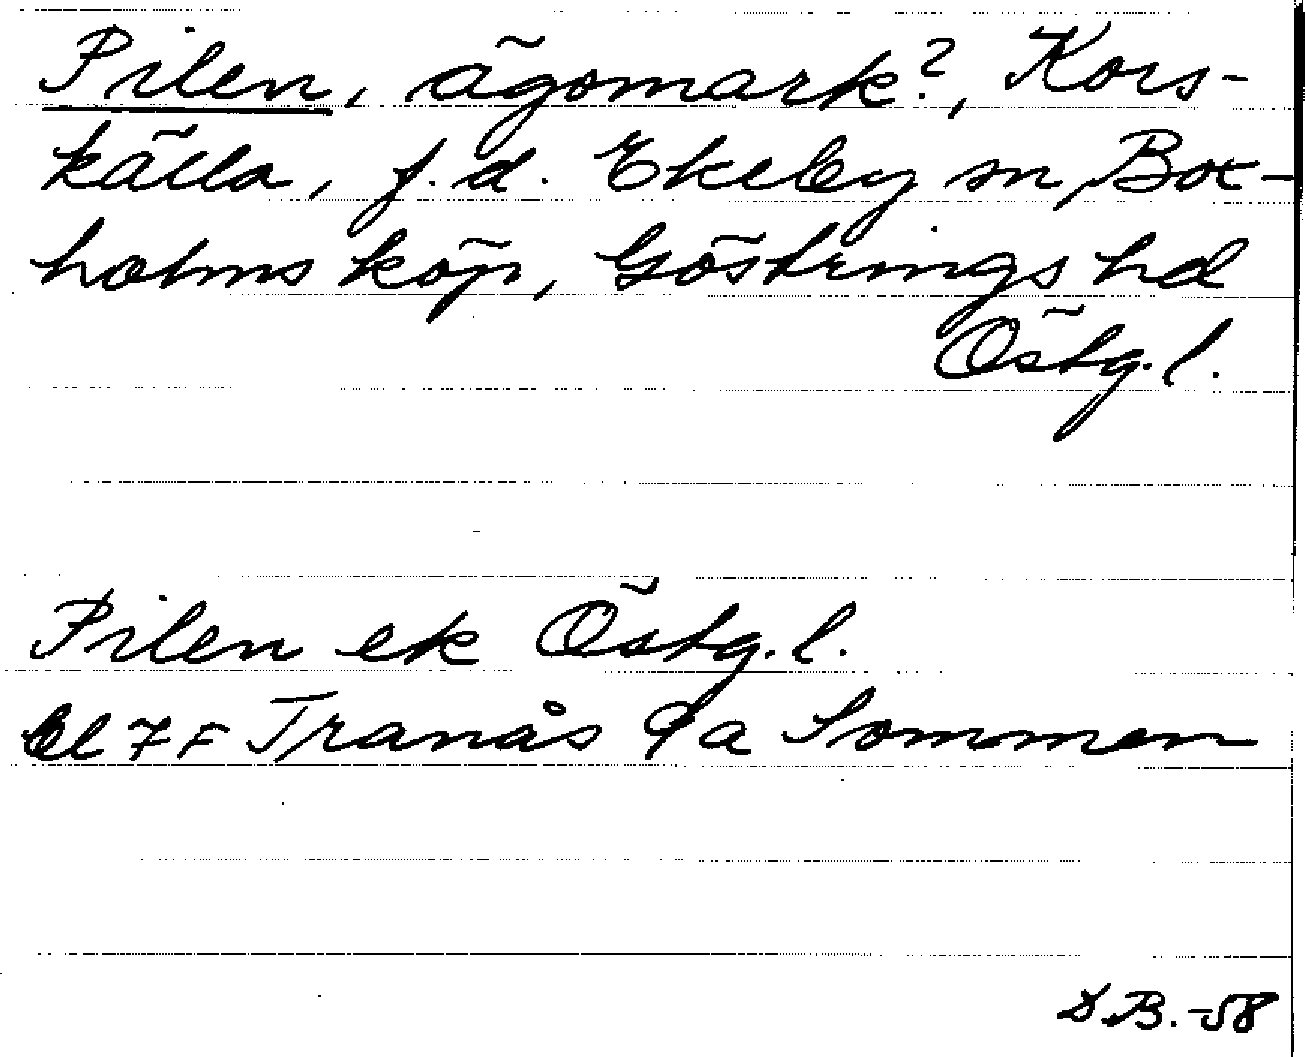 Pilen, ägomark?, Kors-
källa, f.d. Ekeby sn, Box-
holms köp, Göstrings hd
Östg.l.
Pilen ek Östg.l.
Bl 7F Tranås 9a Sommen
D.B.-58